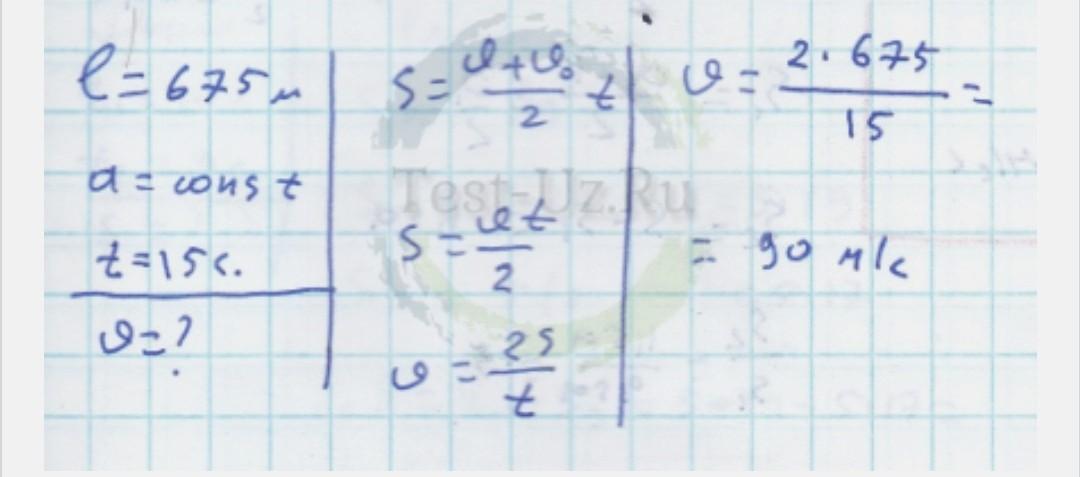 ℓ = 675 м
a = const
t = 15 с.
υ = ?
S = (υ + υ₀)/2 t
S = υt/2
υ = 2S/t
υ = 2 · 675/15 =
= 90 м/с
Test-Uz.Ru